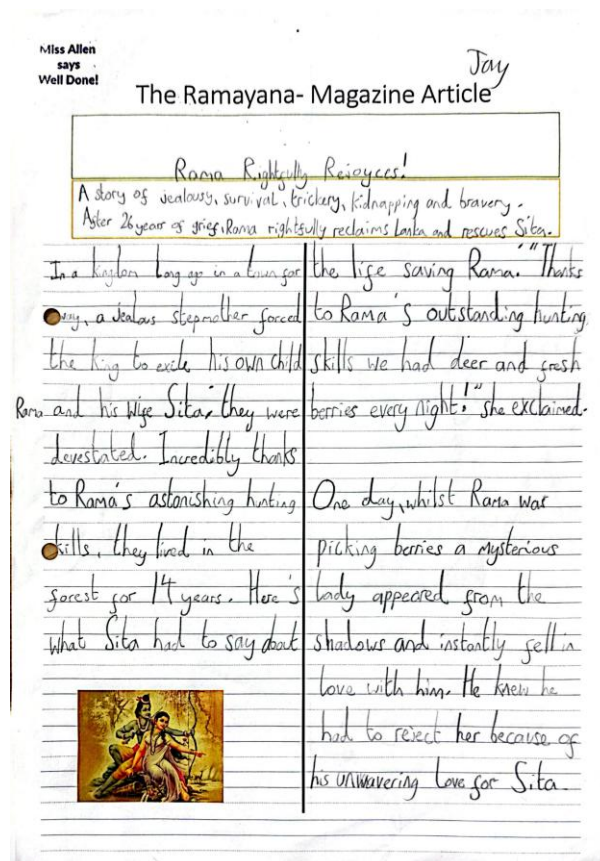 Miss Allen
says
Well Done!
Jay
The Ramayana- Magazine Article
Rama Rightfully Rejoyces!
A story of jealousy, survival, trickery, kidnapping and bravery.
After 26 year of grief, Rama rightfully reclaims Lanka and rescues Sita.
In a kingdom long ago in a town far
away, a jealous stepmother forced
the king to exile his own child
Rama and his wife Sita, they were
devestated. Incredibly thanks
to Rama's astonishing hunting
skills, they lived in the
forest for 14 years. Here's
what Sita had to say about
the life saving Rama. "Thanks
to Rama's outstanding hunting
skills we had deer and fresh
berries every night!" she exclaimed.
One day, whilst Rama was
picking berries a mysterious
lady appeared from the
shadows and instantly fell in
love with him. He knew he
had to reject her because of
his unwavering love for Sita.